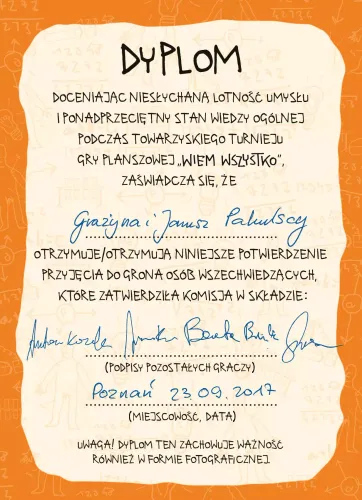 DYPLOM
DOCENIAJĄC NIESŁYCHANĄ LOTNOŚĆ UMYSŁU
I PONADPRZECIĘTNY STAN WIEDZY OGÓLNEJ
PODCZAS TOWARZYSKIEGO TURNIEJU
GRY PLANSZOWEJ „WIEM WSZYSTKO”,
ZAŚWIADCZA SIĘ, ŻE
Grażyna i Janusz
OTRZYMUJE/OTRZYMUJĄ NINIEJSZE POTWIERDZENIE
PRZYJĘCIA DO GRONA OSÓB WSZECHWIEDZĄCYCH,
KTÓRE ZATWIERDZIŁA KOMISJA W SKŁADZIE:
Beata
(PODPISY POZOSTAŁYCH GRACZY)
Poznań 23.09.2017
(MIEJSCOWOŚĆ, DATA)
UWAGA! DYPLOM TEN ZACHOWUJE WAŻNOŚĆ
RÓWNIEŻ W FORMIE FOTOGRAFICZNEJ.